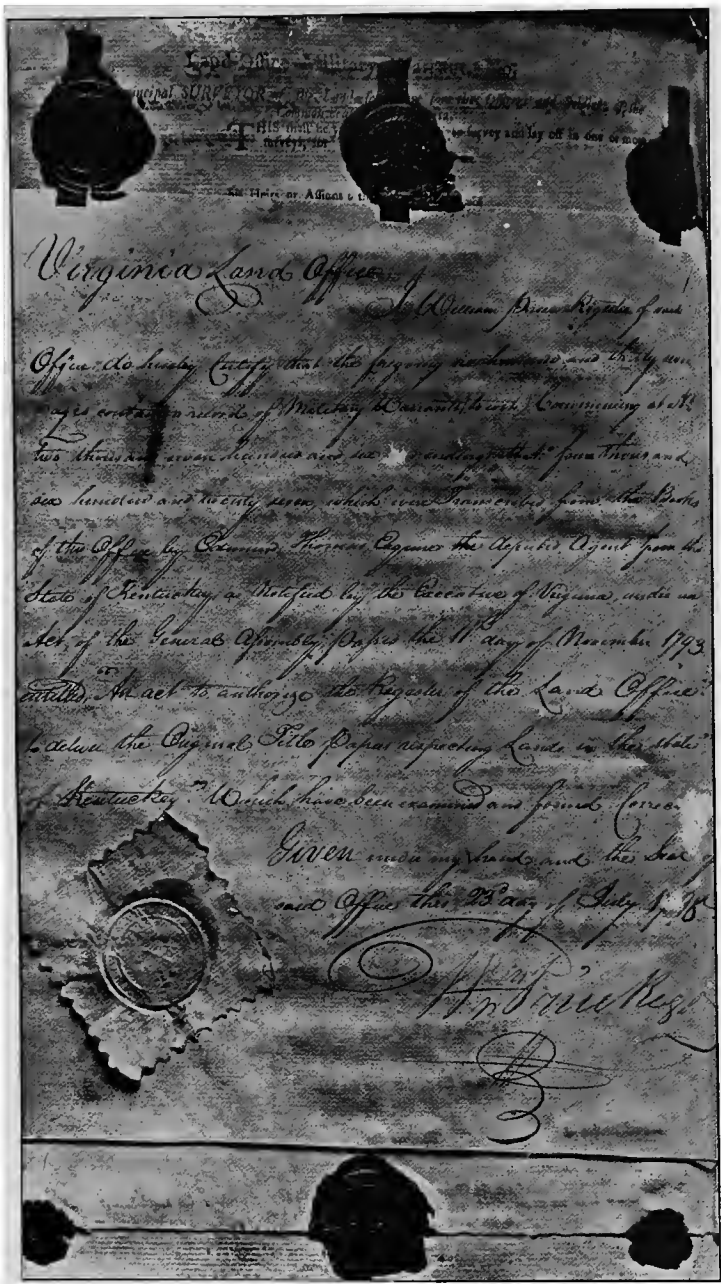 Land Office Military Warrant,
SURVEYOR of the Land
THIS shall be to survey and lay off in one or more
surveys, for
His Heirs or Assigns
Virginia Land Office
I William Price Register of said
Office do hereby Certify that the foregoing hundred and thirty
pages contain a record of Military Warrants (to wit) Commencing at No
two thousand seven hundred and six ending at No four thousand
six hundred and twenty seven, which were Transcribed from the Books
of this Office by Thomas the deputed Agent from the
State of Kentucky, as Notified by the Executive of Virginia, under an
Act, of the General Assembly, passed the 11th day of November 1793
entitled, "An act to authorize the Register of the Land Office"
to deliver the Original Title Papers respecting Lands in the state
of Kentucky" Which have been examined and found Correct
Given under my hand and the Seal of
said Office this 23d day of July
Wm Price Regr